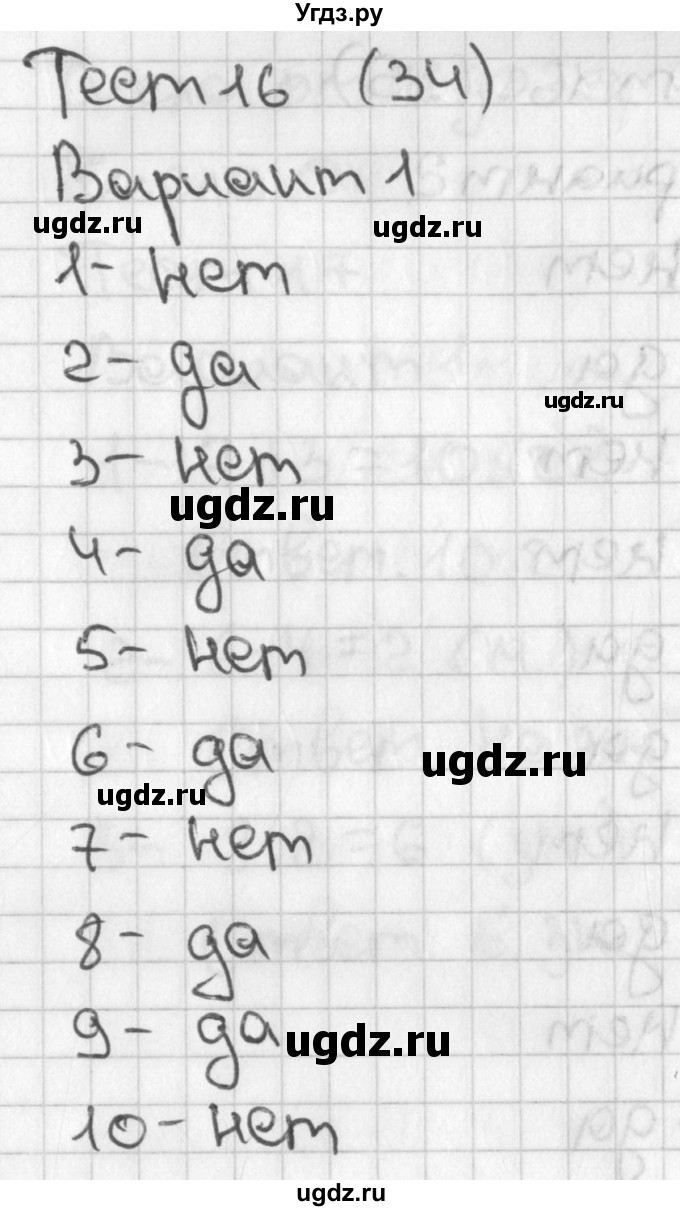 Угдз.ру
Тест 16 (34)
Вариант 1
ugdz.ru ugdz.ru
1- нет
2- да
ugdz.ru
3- нет
ugdz.ru
4- да
5- нет
6- да
ugdz.ru
ugdz.ru
7- нет
8- да
9- да
ugdz.ru
10- нет
ugdz.ru